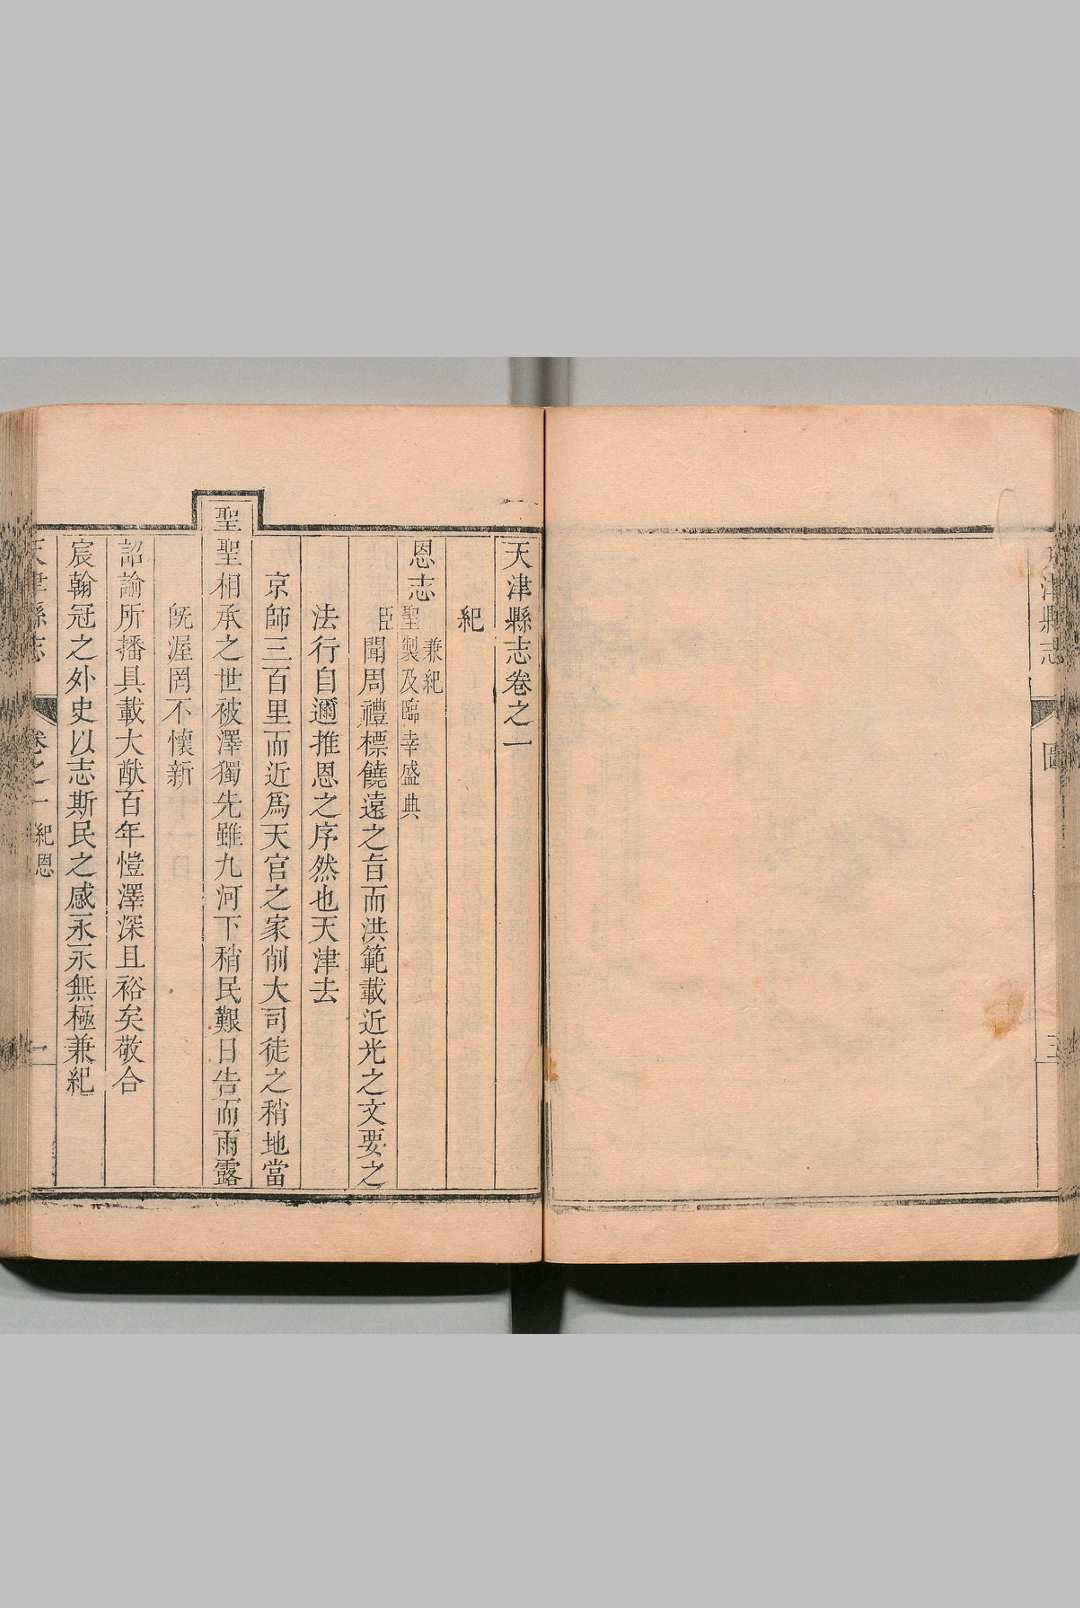 天津縣志
圖
三
天津縣志卷之一
紀
恩志
兼紀
聖製及臨幸盛典
臣聞周禮標饒遠之旨而洪範載近光之文要之
法行自邇推恩之序然也天津去
京師三百里而近爲天官之家削大司徒之稍地當
聖聖相承之世被澤獨先雖九河下稍民艱日告而雨露
旣渥罔不懷新
詔諭所播具載大猷百年愷澤深且裕矣敬合
宸翰冠之外史以志斯民之感永永無極兼紀
天津縣志
卷之一
紀恩
一